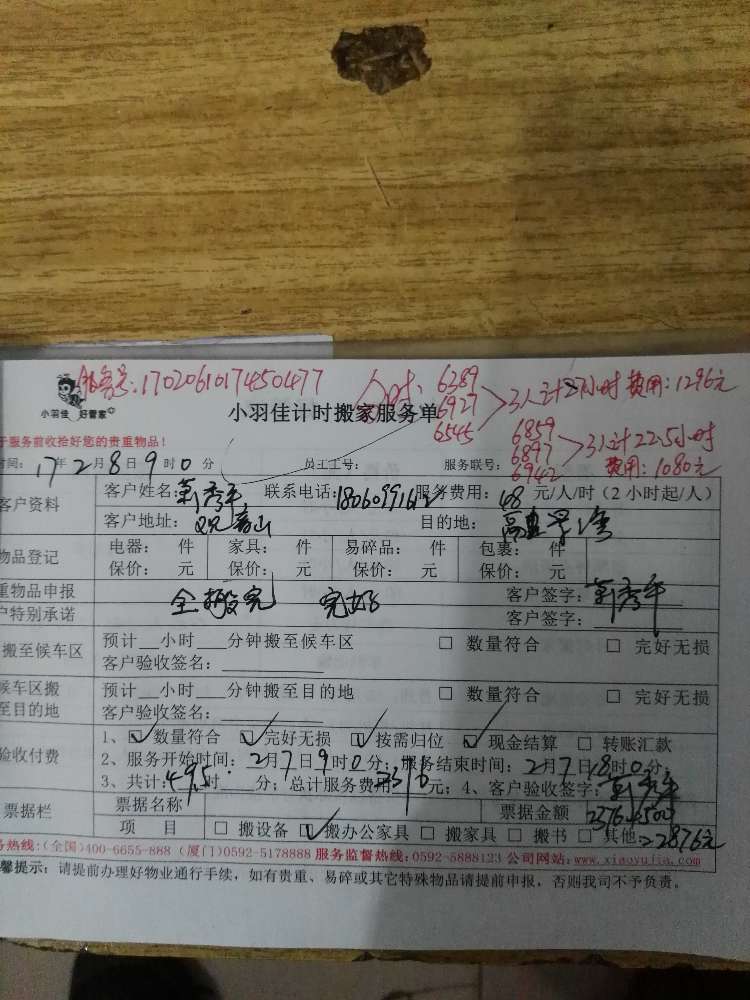 服务号:1702061017450477
人时:6389
6927
6545
3人计27小时 费用:1296元
6859
6897
6942
3人计22.5小时
费用:1080元
小羽佳 好管家
小羽佳计时搬家服务单
于服务前收拾好您的贵重物品!
时间:17年2月8日9时0分 员工工号: 服务联号:
客户资料
客户姓名: 秀平 联系电话:18060991612 服务费用:48元/人/时(2小时起/人)
客户地址: 目的地:
物品登记
电器: 件 家具: 件 易碎品: 件 包裹: 件
保价: 元 保价: 元 保价: 元 保价: 元
重物品申报 全搬完 完好 客户签字: 秀平
户特别承诺 客户签字:
搬至候车区
预计__小时__分钟搬至候车区 □ 数量符合 □ 完好无损
客户验收签名:
候车区搬至目的地
预计__小时__分钟搬至目的地 □ 数量符合 □ 完好无损
客户验收签名:
验收付费
1、☑ 数量符合 ☑ 完好无损 ☑ 按需归位 ☑ 现金结算 □ 转账汇款
2、服务开始时间:2月7日9时0分;服务结束时间:2月7日18时0分;
3、共计:49.5时__分;总计服务费用2376元;4、客户验收签字: 秀平
票据栏
票据名称 票据金额 2376+500
项 目 □ 搬设备 ☑ 搬办公家具 □ 搬家具 □ 搬书 □ 其他:=2876元
务热线:(全国)400-6655-888 (厦门)0592-5178888 服务监督热线:0592-5888123 公司网站:www.xiaoyujia.com
馨提示:请提前办理好物业通行手续,如有贵重、易碎或其它特殊物品请提前申报,否则我司不予负责。